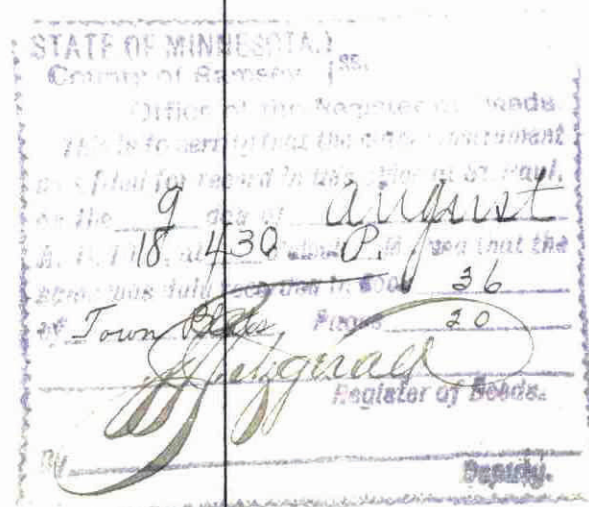 STATE OF MINNESOTA }
County of Ramsey } SS.
Office of the Register of Deeds
This is to certify that the within instrument
was filed for record in this office at St. Paul,
on the 9 day of August
A. D. 18 at 4 30 o'clock P. M., and that the
same was duly recorded in Book 36
of Town Plats Page 20
Fitzgerald
Register of Deeds.
By
Deputy.